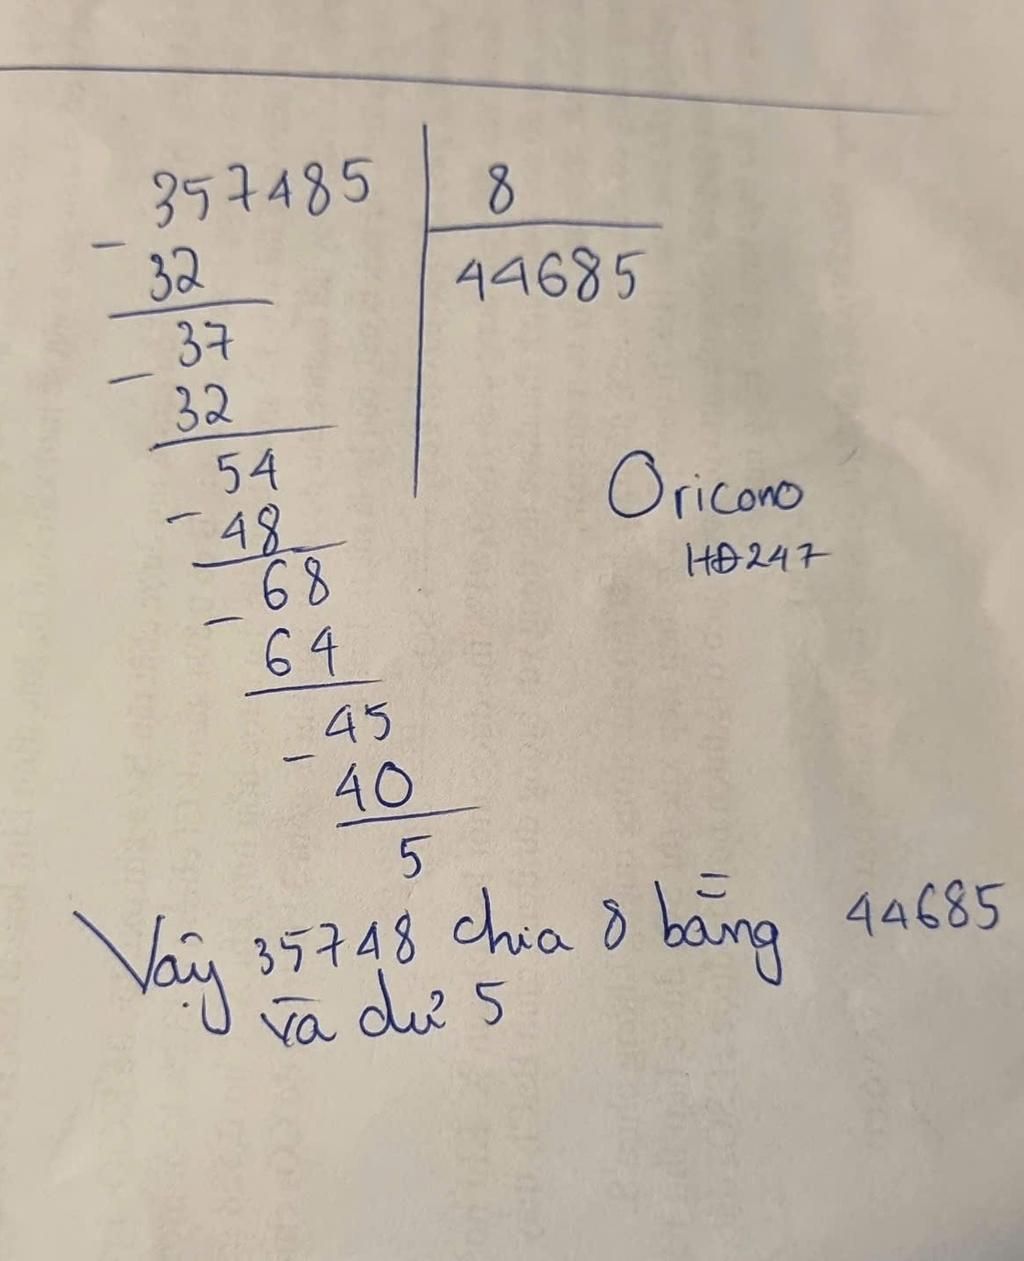 357485 8
- 32 44685
37
- 32
54
- 48
68
- 64
45
- 40
5
Oricono
HĐ247
Vậy 35748 chia 8 bằng 44685
và dư 5